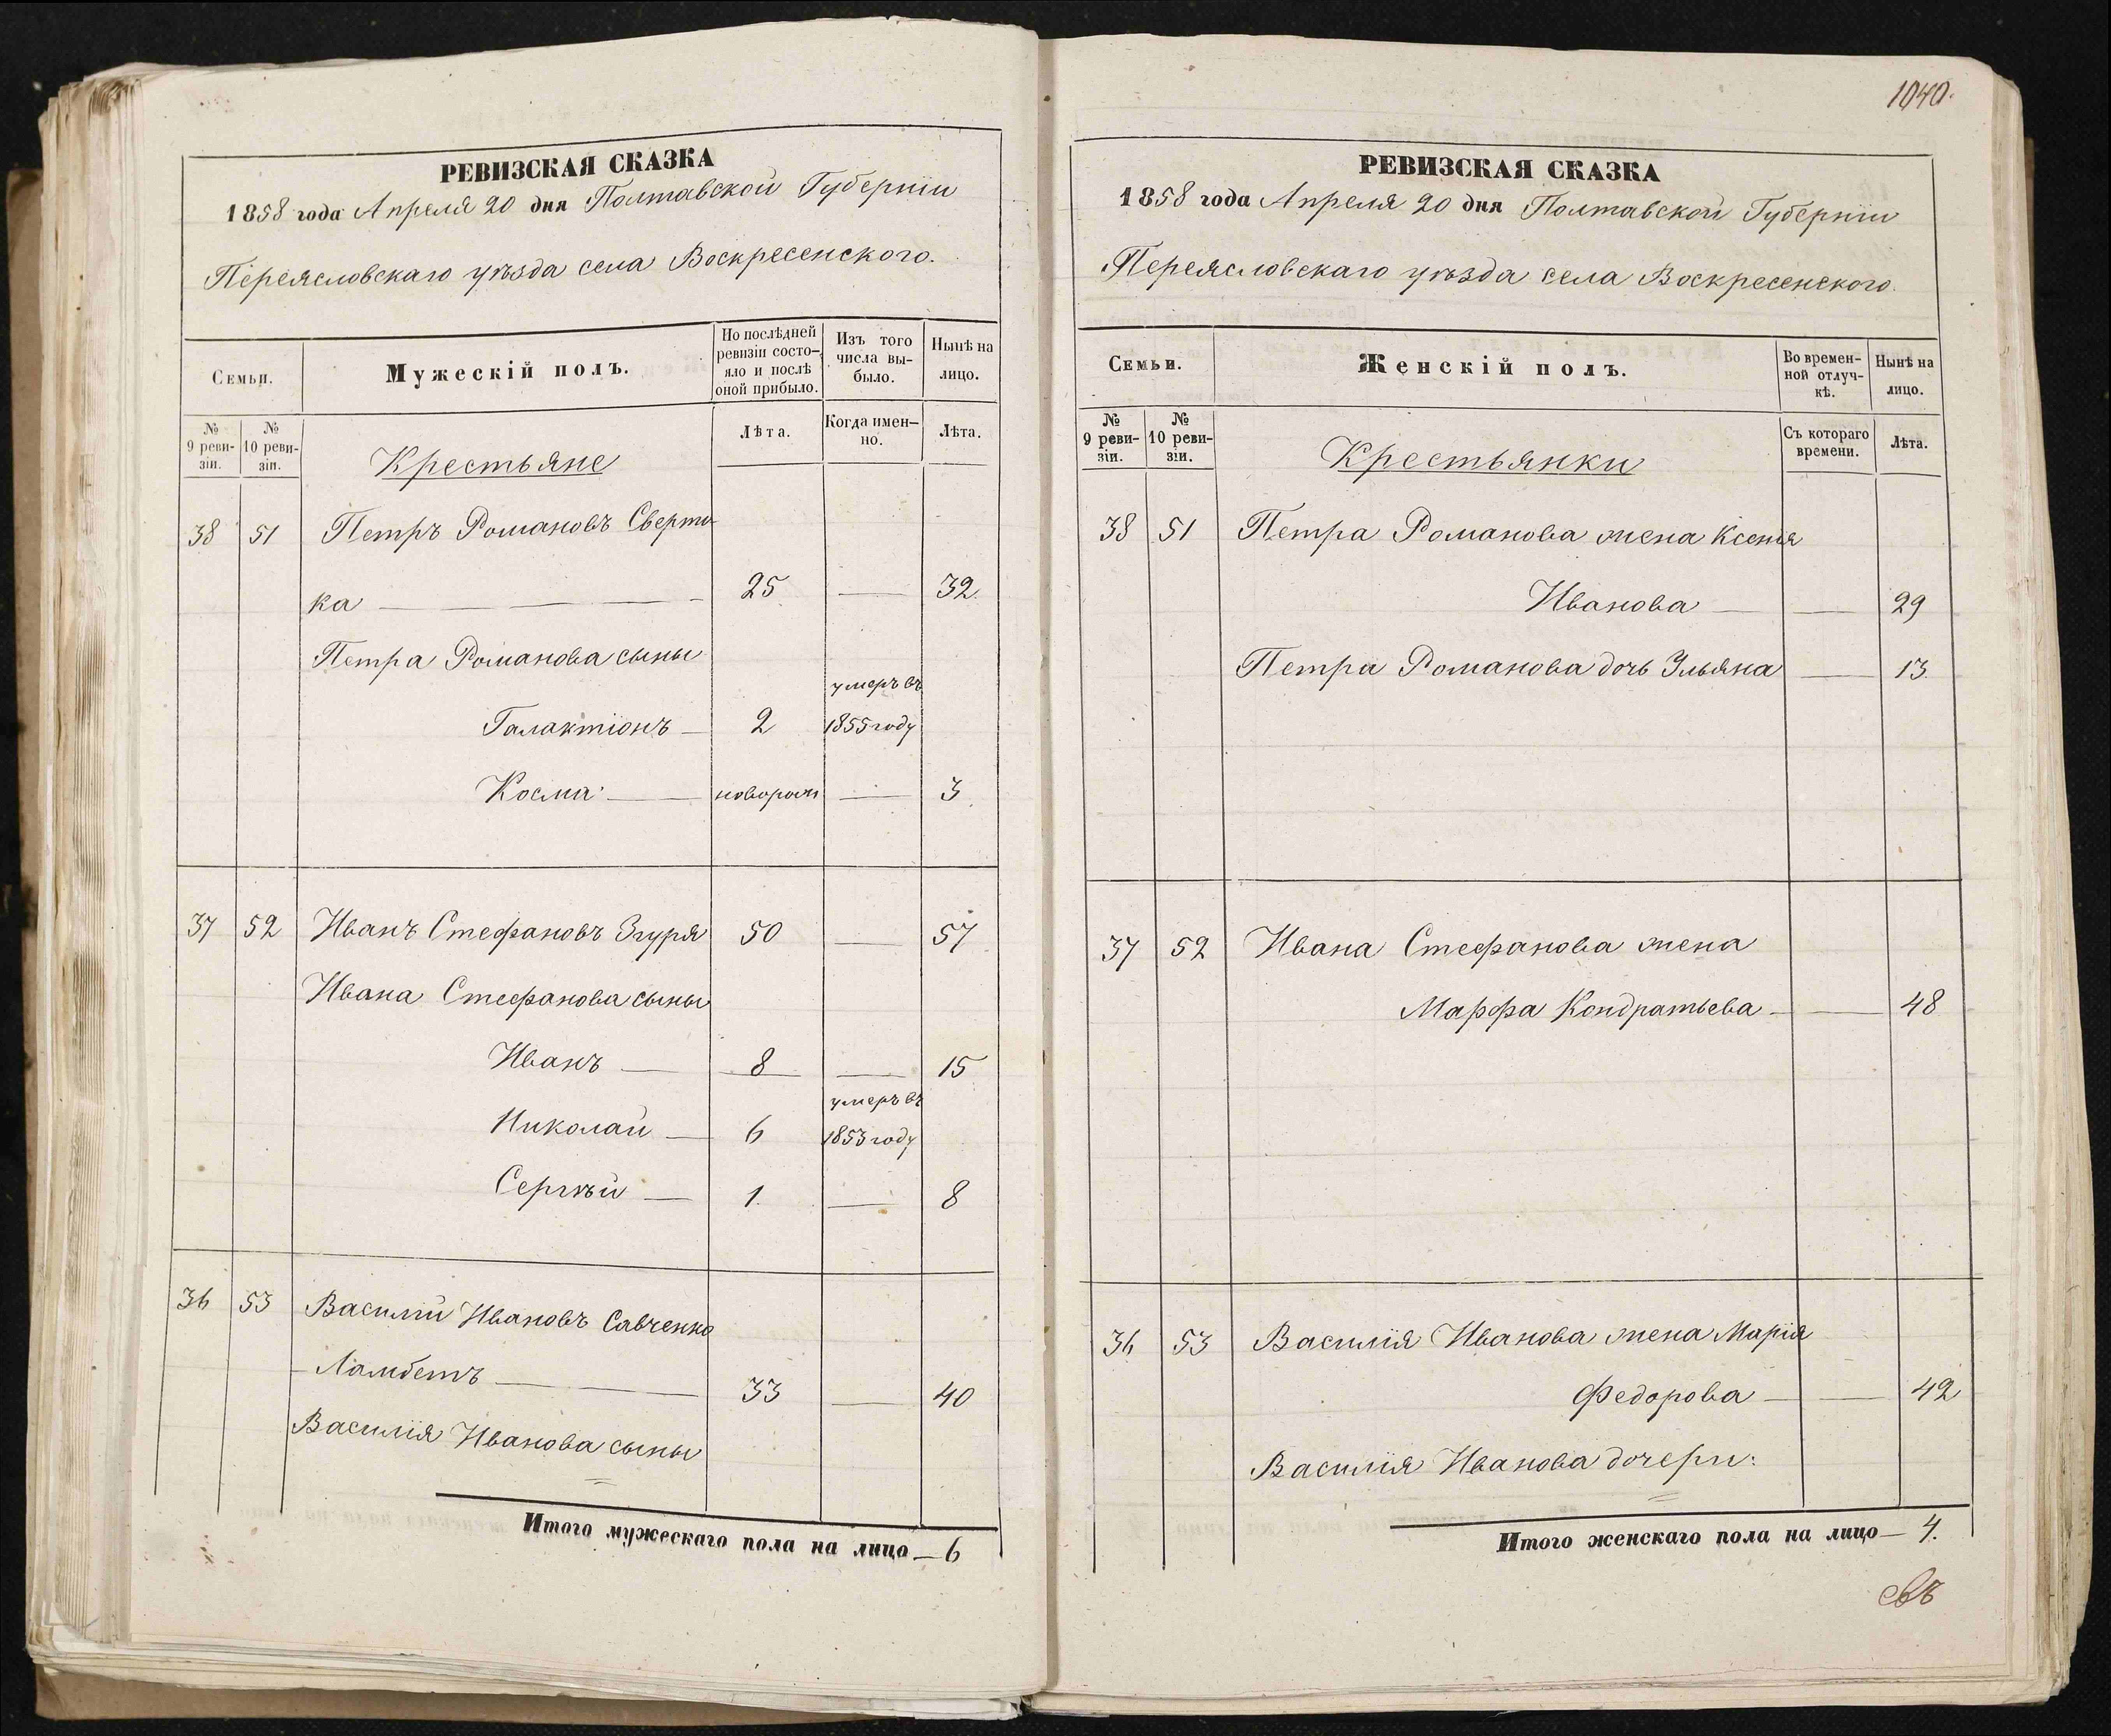 РЕВИЗСКАЯ СКАЗКА
1858 года Апреля 20 дня Полтавской Губерніи
Переясловскаго уѣзда села Воскресенского.
Семьи.
Мужескій полъ.
По послѣдней ревизіи состо-
яло и послѣ
оной прибыло.
Изъ того
числа вы-
было.
Нынѣ на
лицо.
№
9 реви-
зіи.
№
10 реви-
зіи.
Крестьяне
Лѣта.
Когда имен-
но.
Лѣта.
38 51 Петръ Романовъ Сверто-
ка — 25 — 32
Петра Романова сыны
умеръ въ
Галактіонъ — 2 1855 году
Косма — новорож — 3
37 52 Иванъ Стефановъ Згуря 50 — 57
Ивана Стефанова сыны
Иванъ — 8 — 15
умеръ въ
Николай — 6 1853 году
Сергѣй — 1 — 8
36 53 Василій Ивановъ Савченко
- Ламбетъ — 33 — 40
Василія Иванова сыны
Итого мужескаго пола на лицо — 6
1040.
РЕВИЗСКАЯ СКАЗКА
1858 года Апреля 20 дня Полтавской Губерніи
Переясловскаго уѣзда села Воскресенского.
Семьи.
Женскій полъ.
Во времен-
ной отлуч-
кѣ.
Нынѣ на
лицо.
№
9 реви-
зіи.
№
10 реви-
зіи.
Крестьянки
Съ котораго
времени.
Лѣта.
38 51 Петра Романова жена Ксенія
Иванова — — 29
Петра Романова дочь Ульяна — 13
37 52 Ивана Стефанова жена
Марфа Кондратьева — — 48
36 53 Василія Иванова жена Марія
Федорова — — 42
Василія Иванова дочери:
Итого женскаго пола на лицо — 4.